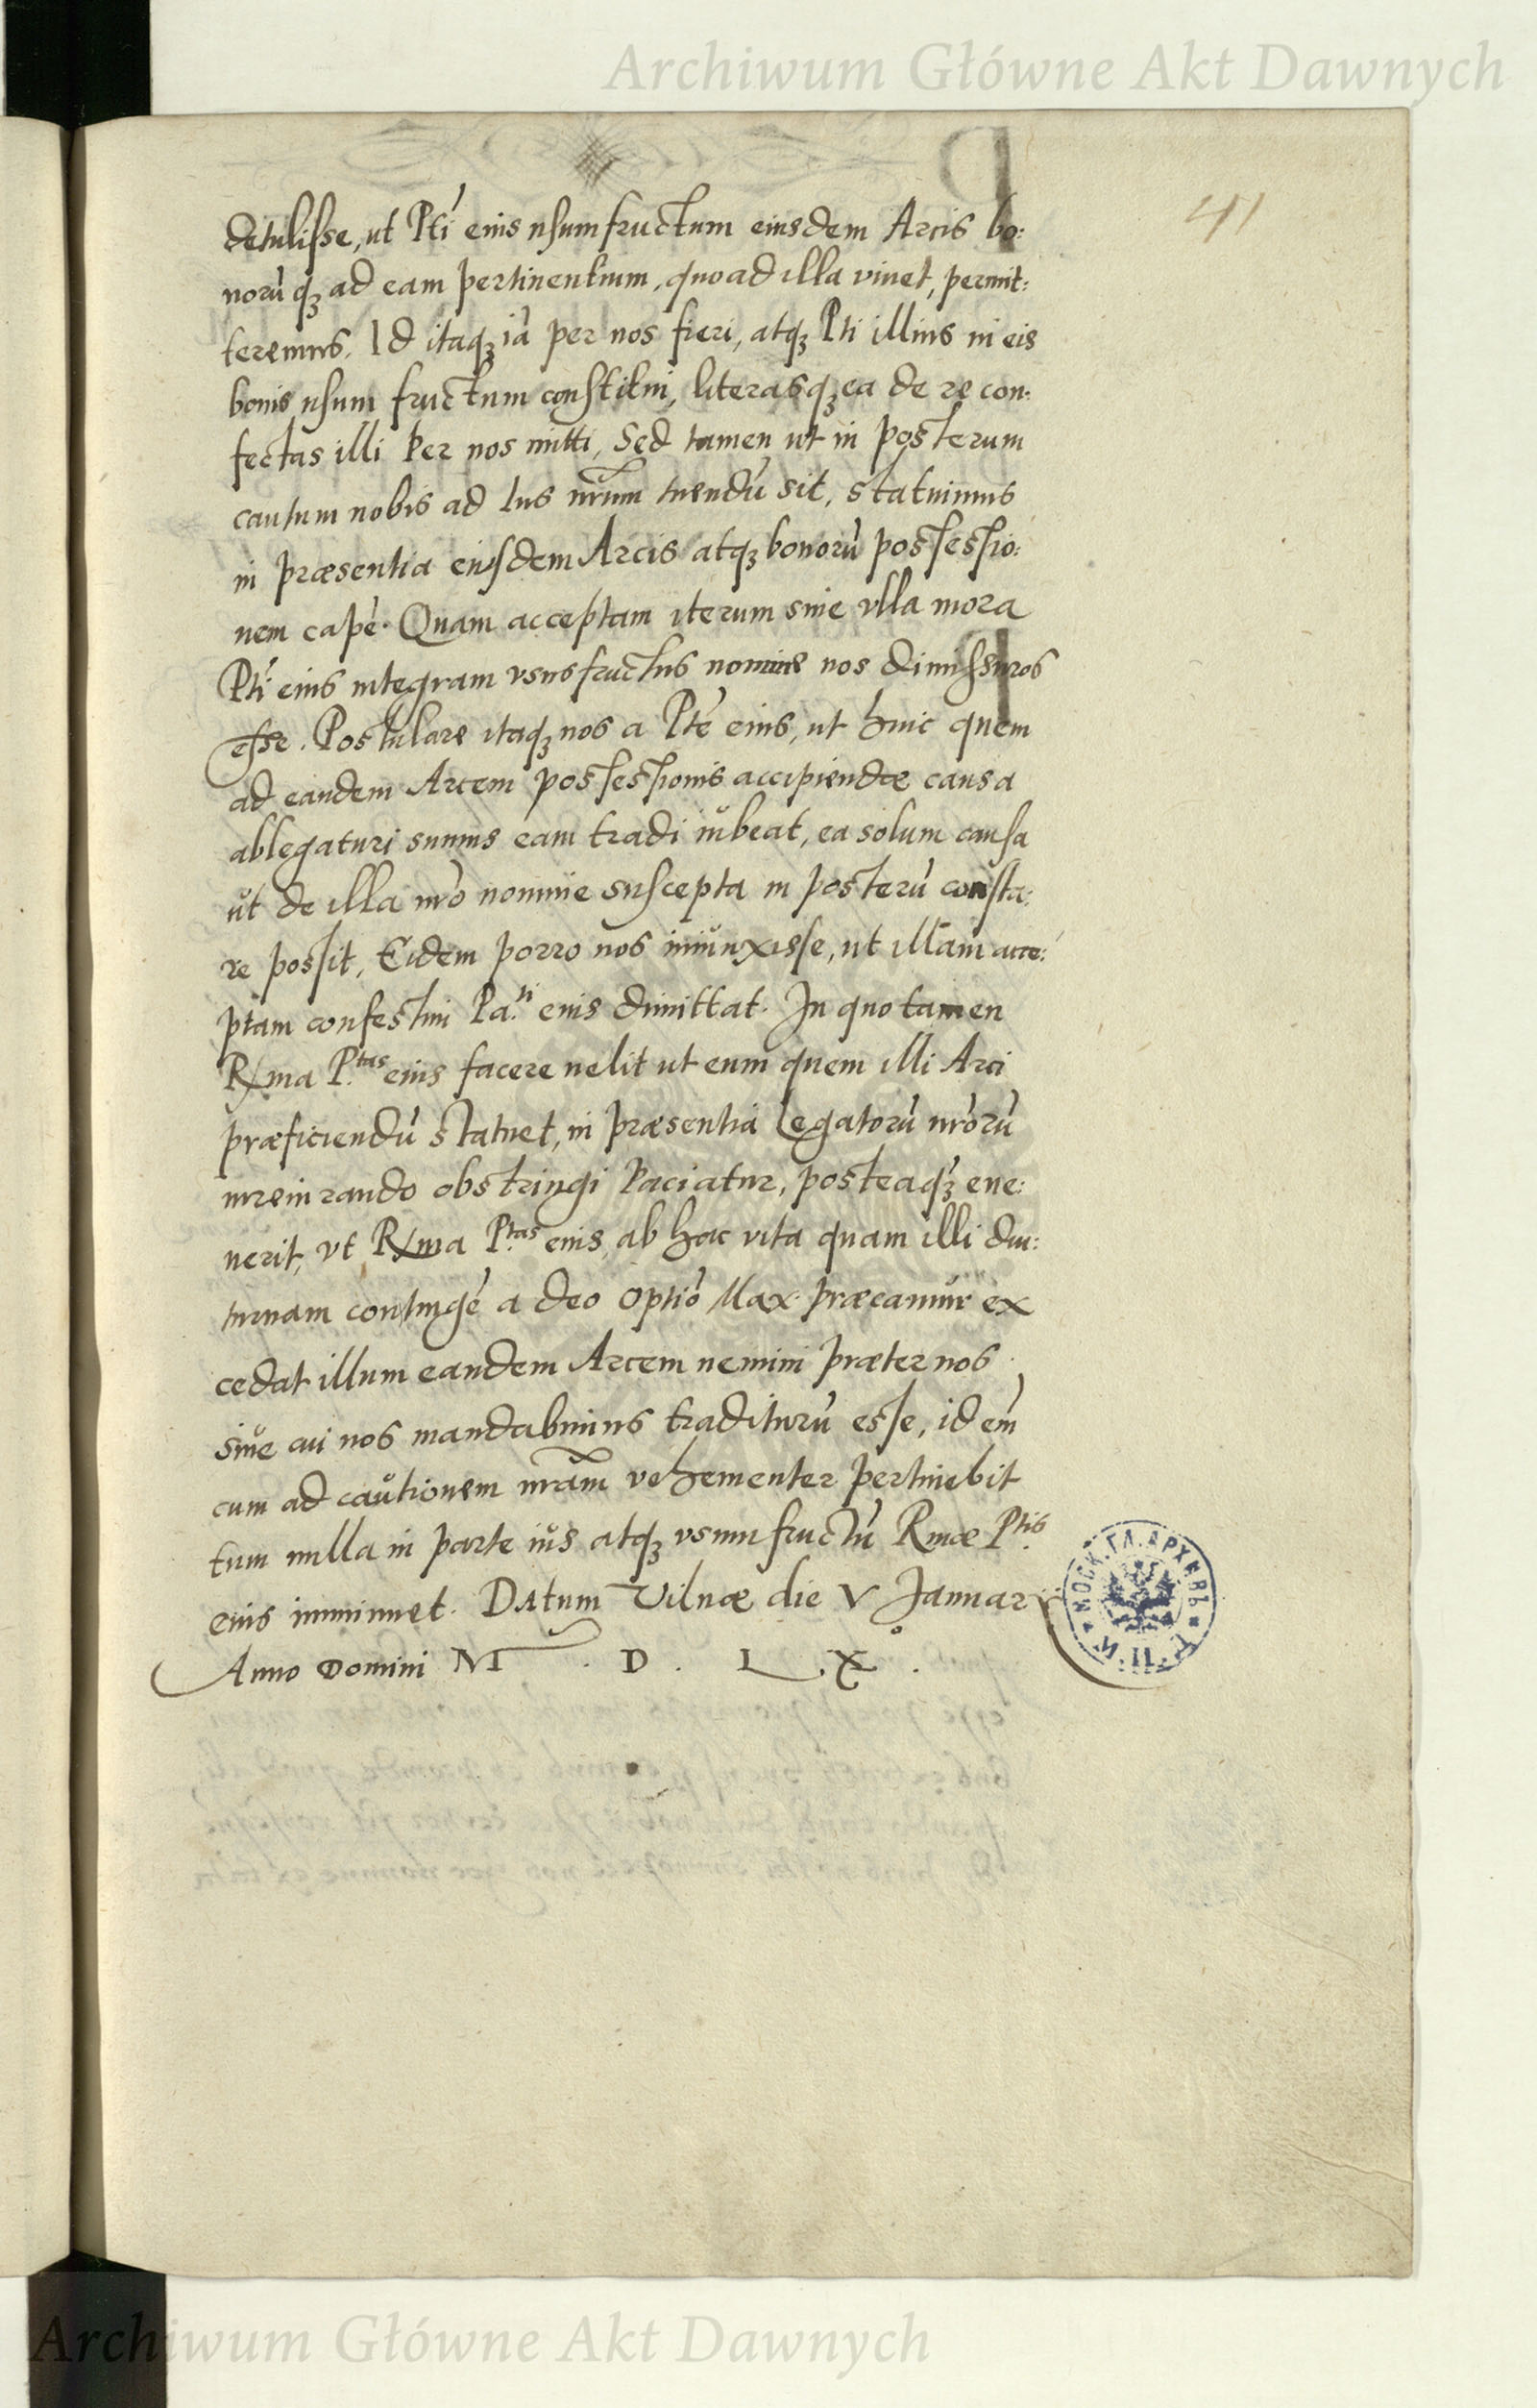 Archiwum Główne Akt Dawnych
41
detulisse, ut Pti eius usumfructum eiusdem Arcis bo:
norũ qȝ ad eam pertinentium, quoad illa vivet, permit:
teremus. Id itaqȝ iã per nos fieri, atqȝ Pti illius in eis
bonis usum fructum constitui, literasqȝ ea de re con:
fectas illi per nos mitti, Sed tamen ut in posterum
cautum nobis ad Ius nr̃um tuendũ sit, statuimus
in præsentia eiusdem Arcis atqȝ bonorũ possessio:
nem capẽ. Quam acceptam iterum sine ulla mora
Pti eius integram ususfructus nomine nos dimissuros
esse. Postulare itaqȝ nos a Pte eius, ut huic quem
ad eandem Arcem possessionis accipiendæ causa
ablegaturi sumus eam tradi iubeat, ea solum causa
ut de illa nr̃o nomine suscepta in posterũ consta:
re possit, Eidem porro nos iniunxisse, ut illam acce:
ptam confestim Pa.ti eius dimittat. In quo tamen
Rma P.tas eius facere velit ut eum quem illi Arci
præficiendũ statuet, in præsentia Legatorũ nr̃orũ
iureiurando obstringi paciatur, posteaqȝ eve:
nerit, ut Rma P.tas eius, ab hac vita quam illi diu:
turnam contingẽ a deo optiõ Max. præcamur ex
cedat illum eandem Arcem nemini præter nos,
sive cui nos mandabimus traditurũ esse, id em̃
cum ad cautionem nr̃am vehementer pertinebit
tum nulla in parte ius atqȝ usumfructũ Rmæ P.tis
eius imminuet. Datum Vilnæ die V Januarii
Anno Domini M . D . L . X .
МОСК. ГЛ. АРХИВЪ
М. И. Д.
Archiwum Główne Akt Dawnych